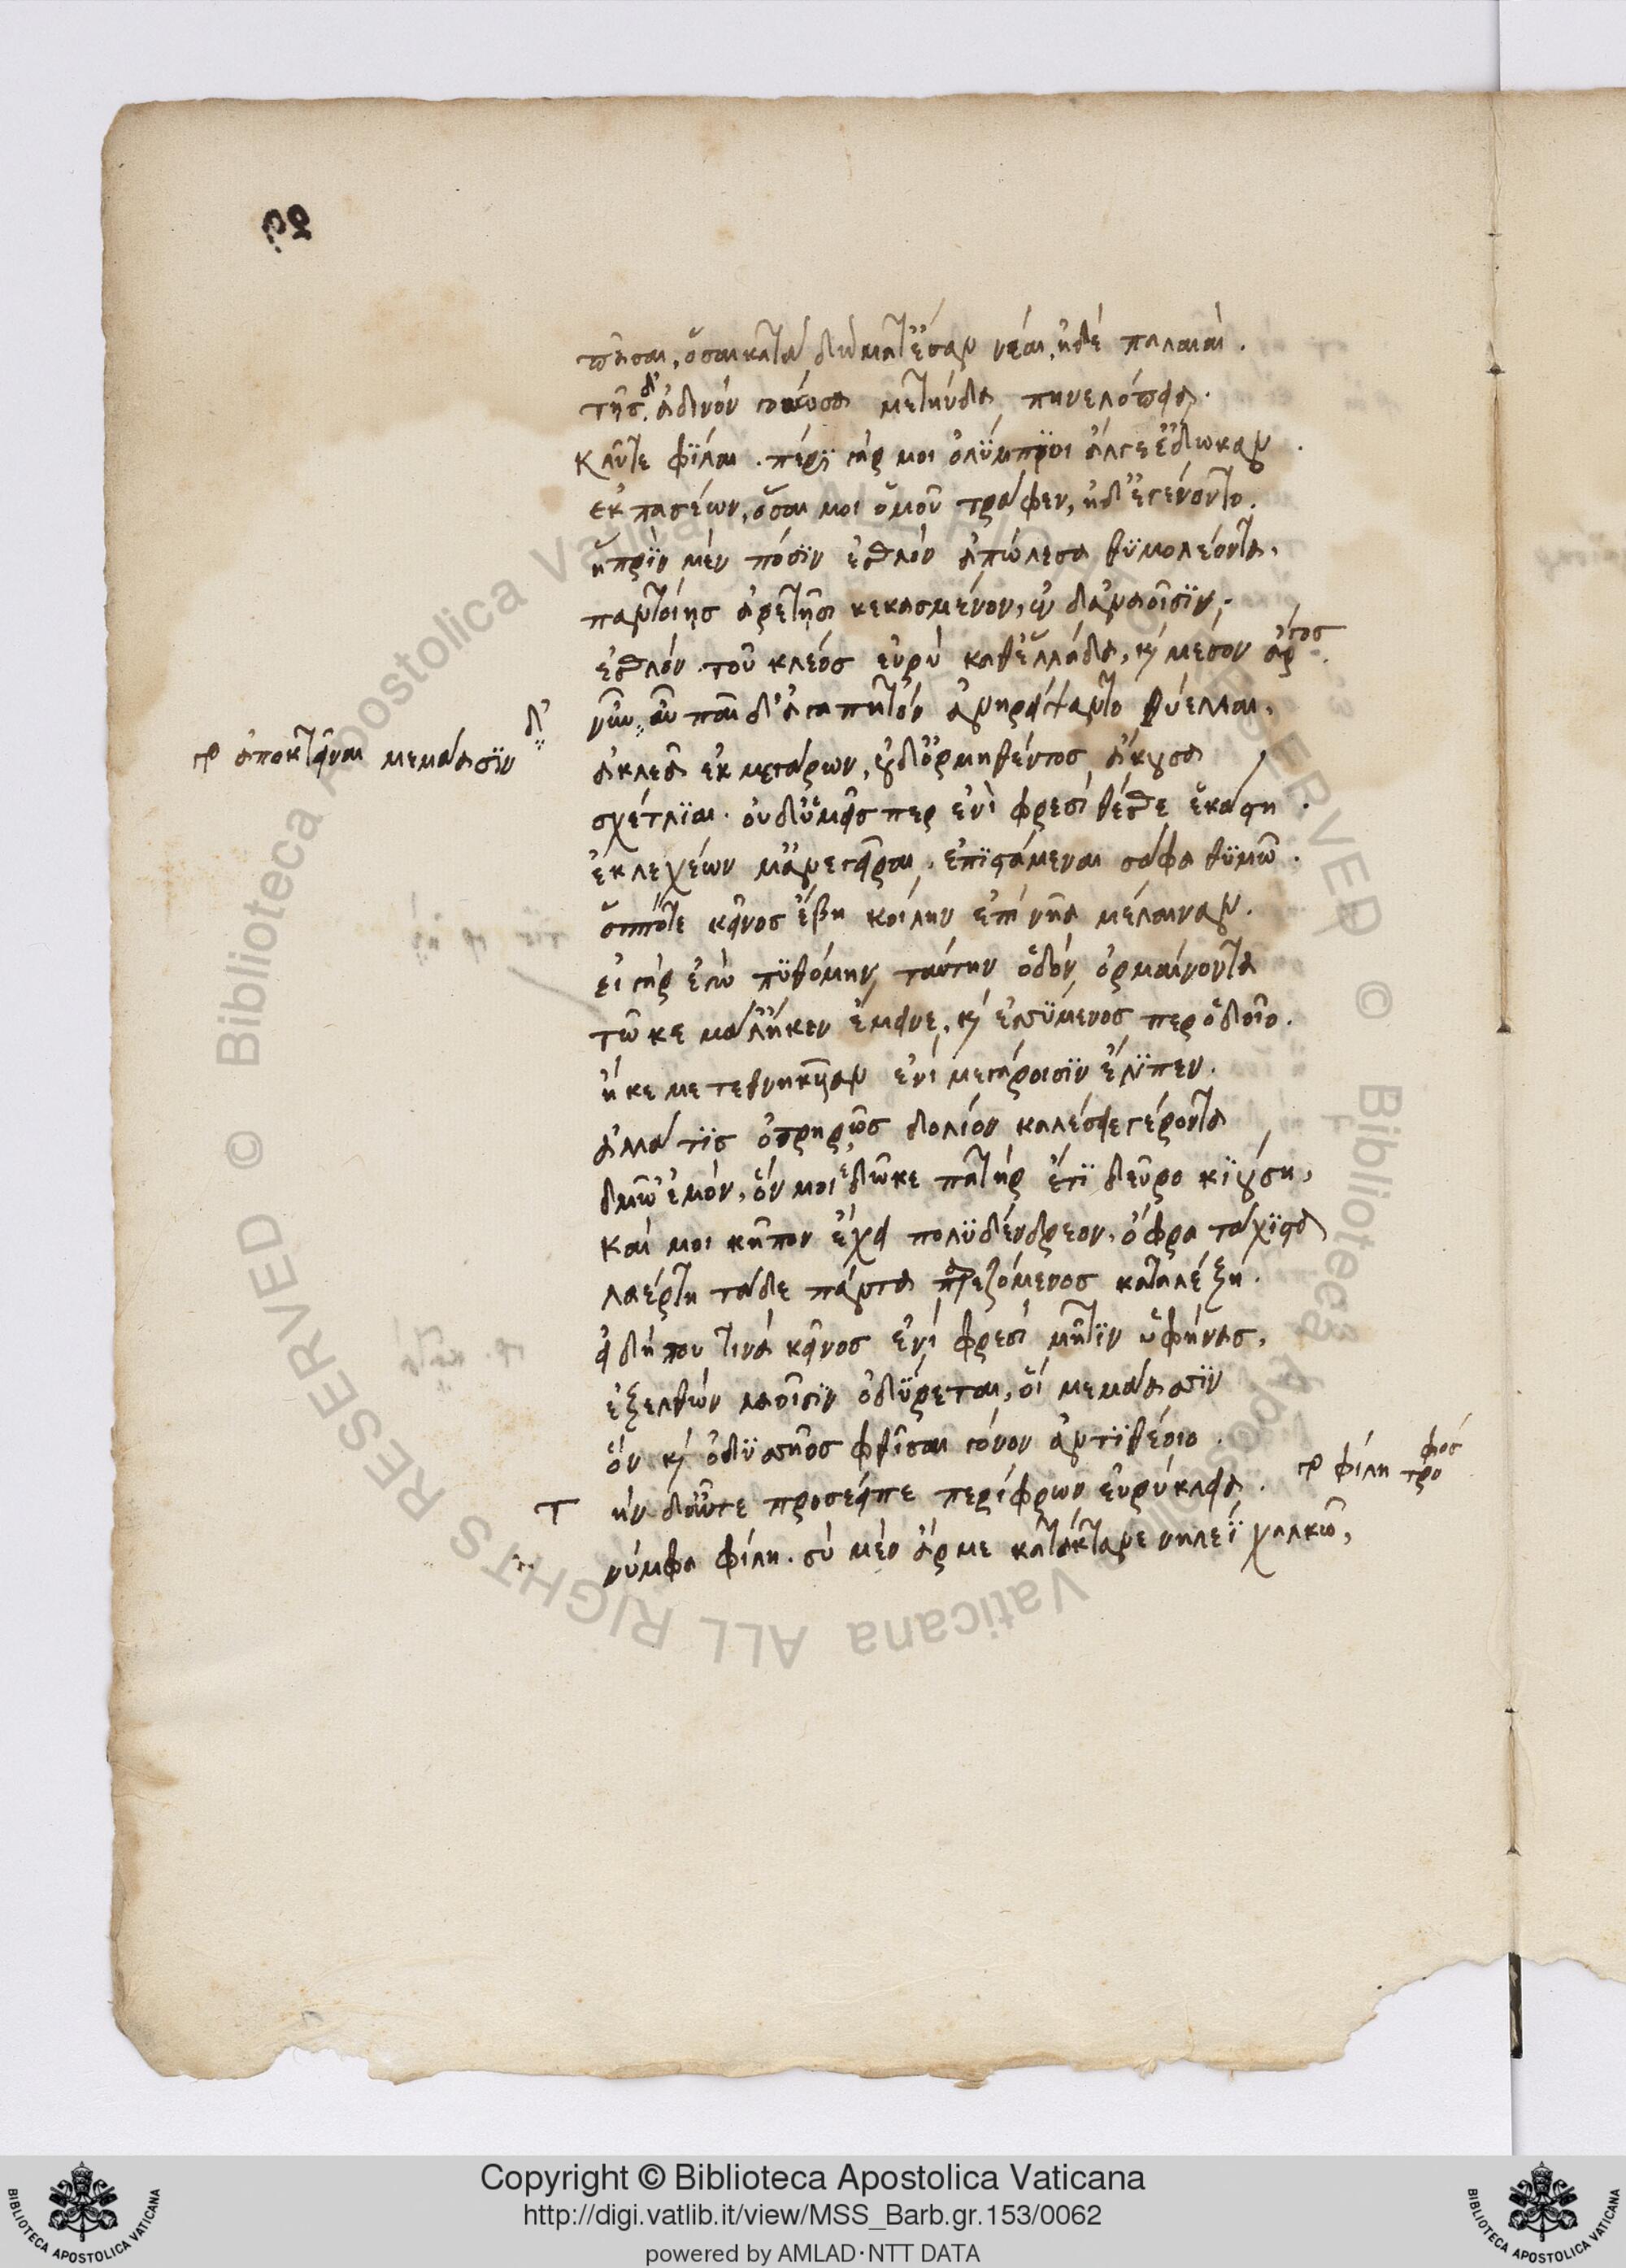 πᾶσαι, ὅσαι κατὰ δώματ' ἔσαν νέαι, ἠδὲ παλαιαί.
τῆς δ' ἁδινὸν γοόωσα μετηύδα πηνελόπεια.
Κλῦτε φίλαι. πέρι γάρ μοι ὀλύμπιοι ἄλγε' ἔδωκαν.
ἐκ πασέων, ὅσαι μοι ὁμοῦ τράφεν, ἠδ' ἐγένοντο.
ἣ πρὶν μὲν πόσιν ἐσθλὸν ἀπώλεσα θυμολέοντα,
παντοίης ἀρετῇσι κεκασμένον, ἐν δαναοῖσιν.
ἐσθλόν. τοῦ κλέος εὐρὺ καθ' ἑλλάδα, καὶ μέσον ἄργος.
νῦν αὖ παῖδ' ἀγαπητὸν ἀνηρείψαντο θύελλαι,
γρ ἀποκτεῖναι μεμάασιν
δ'
ἀκλέα ἐκ μεγάρων, οὐδ' ὁρμηθέντος ἄκουσα
σχέτλιαι. οὐδ' ὑμεῖς περ ἐνὶ φρεσὶ θέσθε ἑκάστη.
ἐκ λεχέων μ' ἀνεγεῖραι. ἐπιστάμεναι σάφα θυμῶ.
ὁππότε κεῖνος ἔβη κοίλην ἐπὶ νῆα μέλαιναν.
εἰ γὰρ ἐγὼ πυθόμην ταύτην ὁδὸν ὁρμαίνοντα
τῶ κε μάλ' ἤ κεν ἔμεινε, καὶ ἐσσύμενος περ ὁδοῖο.
ἤ κε με τεθνηκυῖαν ἐνὶ μεγάροισιν ἔλιπεν.
ἀλλά τις ὀτρηρῶς δολίον καλέσειε γέροντα
δμῶ' ἐμόν, ὅν μοι ἔδωκε πατὴρ ἔτι δεῦρο κιούση,
καί μοι κῆπον ἔχει πολυδένδρεον, ὄφρα τάχιστα
λαέρτη τάδε πάντα παρεζόμενος καταλέξη.
εἰ δή που τινὰ κεῖνος ἐνὶ φρεσὶ μῆτιν ὑφήνας,
ἐξελθὼν λαοῖσιν ὀδύρεται, οἳ μεμάασιν
ὃν καὶ ὀδυσσῆος φθῖσαι γόνον ἀντιθέοιο.
Τ ὴν δ' αὖτε προσέειπε περίφρων εὐρύκλεια. γρ φίλη τροφός
νύμφα φίλη. σὺ μὲν ἄρ με κατάκτανε νηλέϊ χαλκῶ,
Copyright © Biblioteca Apostolica Vaticana
http://digi.vatlib.it/view/MSS_Barb.gr.153/0062
powered by AMLAD·NTT DATA